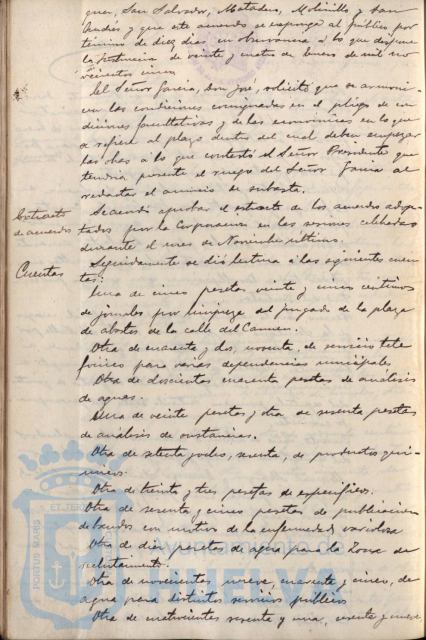 guer, San Salvador, Matadero, Molinillo y San
Andrés y que este acuerdo se exponga al público por
término de diez días, en observancia a lo que dispone
la Instrucción de veinte y cuatro de Enero de mil no-
vecientos cinco.
El Señor García, Don José, solicitó que se armoni-
cen las condiciones consignadas en el pliego de con-
diciones facultativas y de las económicas en lo que
se refiere al plazo dentro del cual deben empezar
las obras a lo que contestó el Señor Presidente que
tendría presente el ruego del Señor García al
redactar el anuncio de subasta.
Extracto
de acuerdos
Se acordó aprobar el extracto de los acuerdos adop-
tados por la Corporación en las sesiones celebradas
durante el mes de Noviembre último.
Cuentas
Seguidamente se dió lectura a las siguientes cuen-
tas:
Una de cinco pesetas veinte y cinco céntimos
de jornales por limpieza del juzgado de la plaza
de abastos de la calle del Carmen.
Otra de cuarenta y dos, noventa, de servicio tele-
fónico para varias dependencias municipales.
Otra de doscientas cuarenta pesetas de análisis
de aguas.
Una de veinte pesetas y otra de sesenta pesetas
de análisis de sustancias.
Otra de setenta y ocho, sesenta, de productos quí-
micos.
Otra de treinta y tres pesetas de específicos.
Otra de sesenta y cinco pesetas de publicación
de bandos con motivo de la enfermedad variolosa
Otra de diez pesetas de agua para la Zona de
reclutamiento.
Otra de novecientas nueve, cuarenta y cinco, de
agua para distintos servicios públicos
Otra de cuatrocientas sesenta y una, cuarenta y nueve
PORTUS MARIS ET TERRAE
Ayuntamiento de
HUELVA